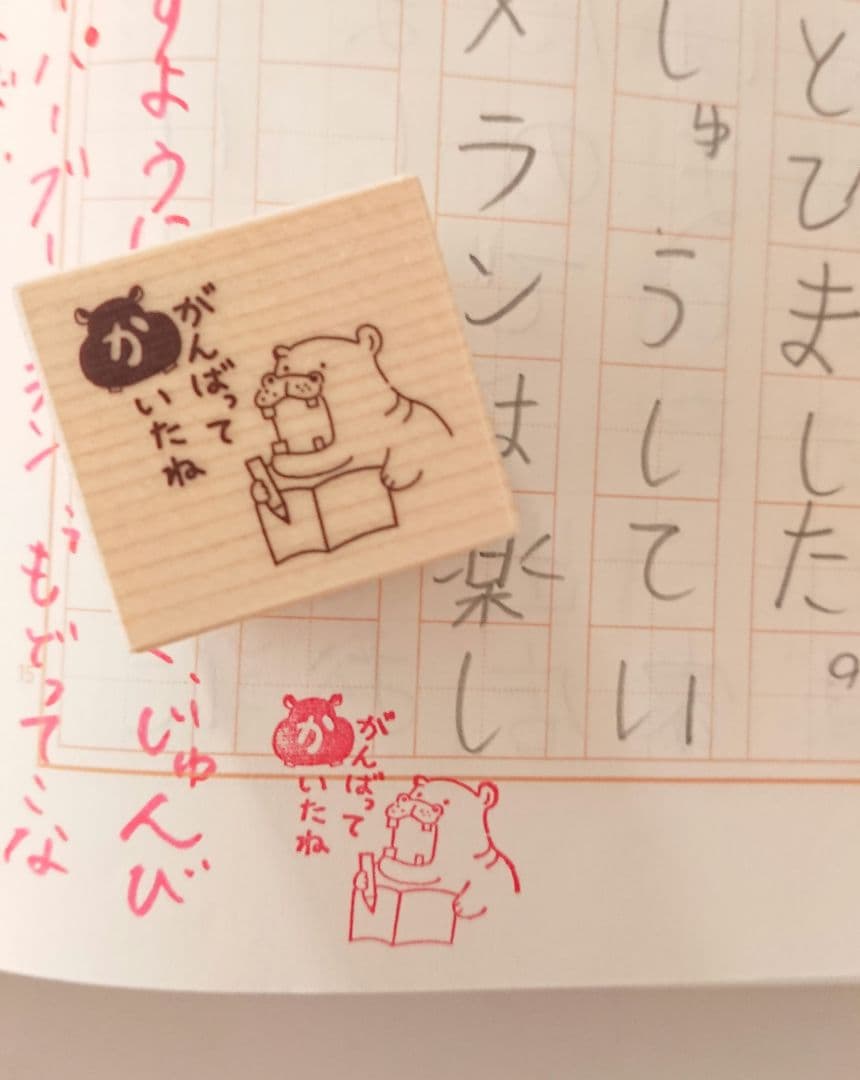 とひました。
しゅうしてい
メランは楽し
がんばって
かいたね
がんばって
かいたね
すように
じゅんび
バーブー
もどってこな